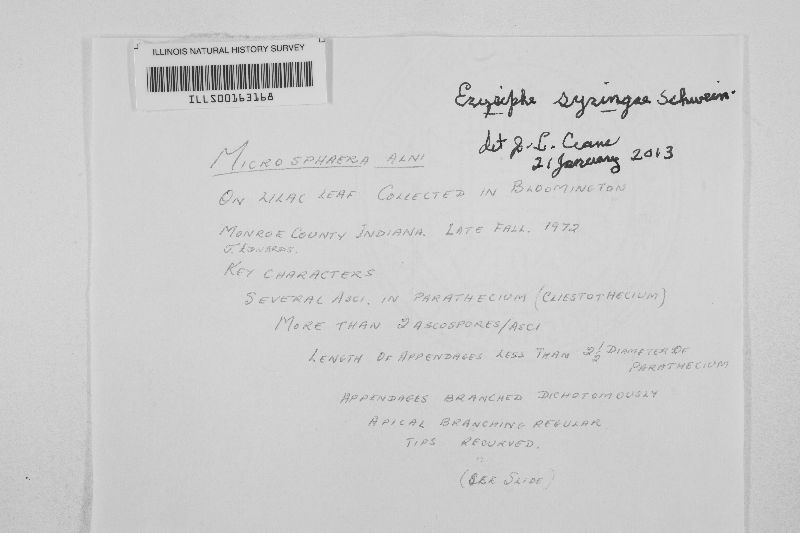 ILLINOIS NATURAL HISTORY SURVEY
ILLS00163168
Erysiphe syringae Schwein.
det J. L. Crane
21 January 2013
MICROSPHAERA ALNI
ON LILAC LEAF COLLECTED IN BLOOMINGTON
MONROE COUNTY INDIANA. LATE FALL. 1972
J.
KEY CHARACTERS
SEVERAL ASCI. IN PARATHECIUM (CLIESTOTHECIUM)
MORE THAN 2 ASCOSPORES/ASCI
LENGTH OF APPENDAGES LESS THAN 2 1/2 DIAMETER OF
PARATHECIUM
APPENDAGES BRANCHED DICHOTOMOUSLY
APICAL BRANCHING REGULAR
TIPS RECURVED.
(SEE SLIDE)